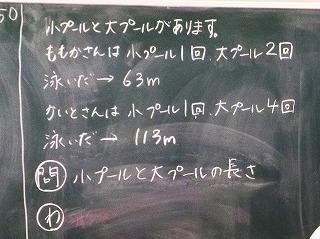 50
小プールと大プールがあります。
ももかさんは小プール1回、大プール2回
泳いだ→63m
かいとさんは小プール1回、大プール4回
泳いだ→113m
問 小プールと大プールの長さ
わ